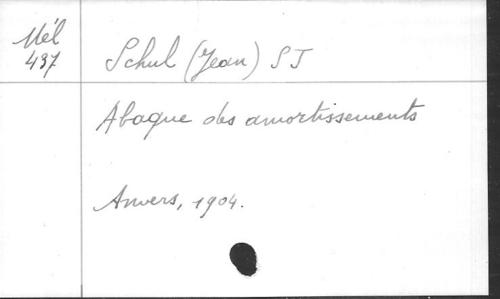 Mél
437
Schul (Jean) S J
Abaque des amortissements
Anvers, 1904.